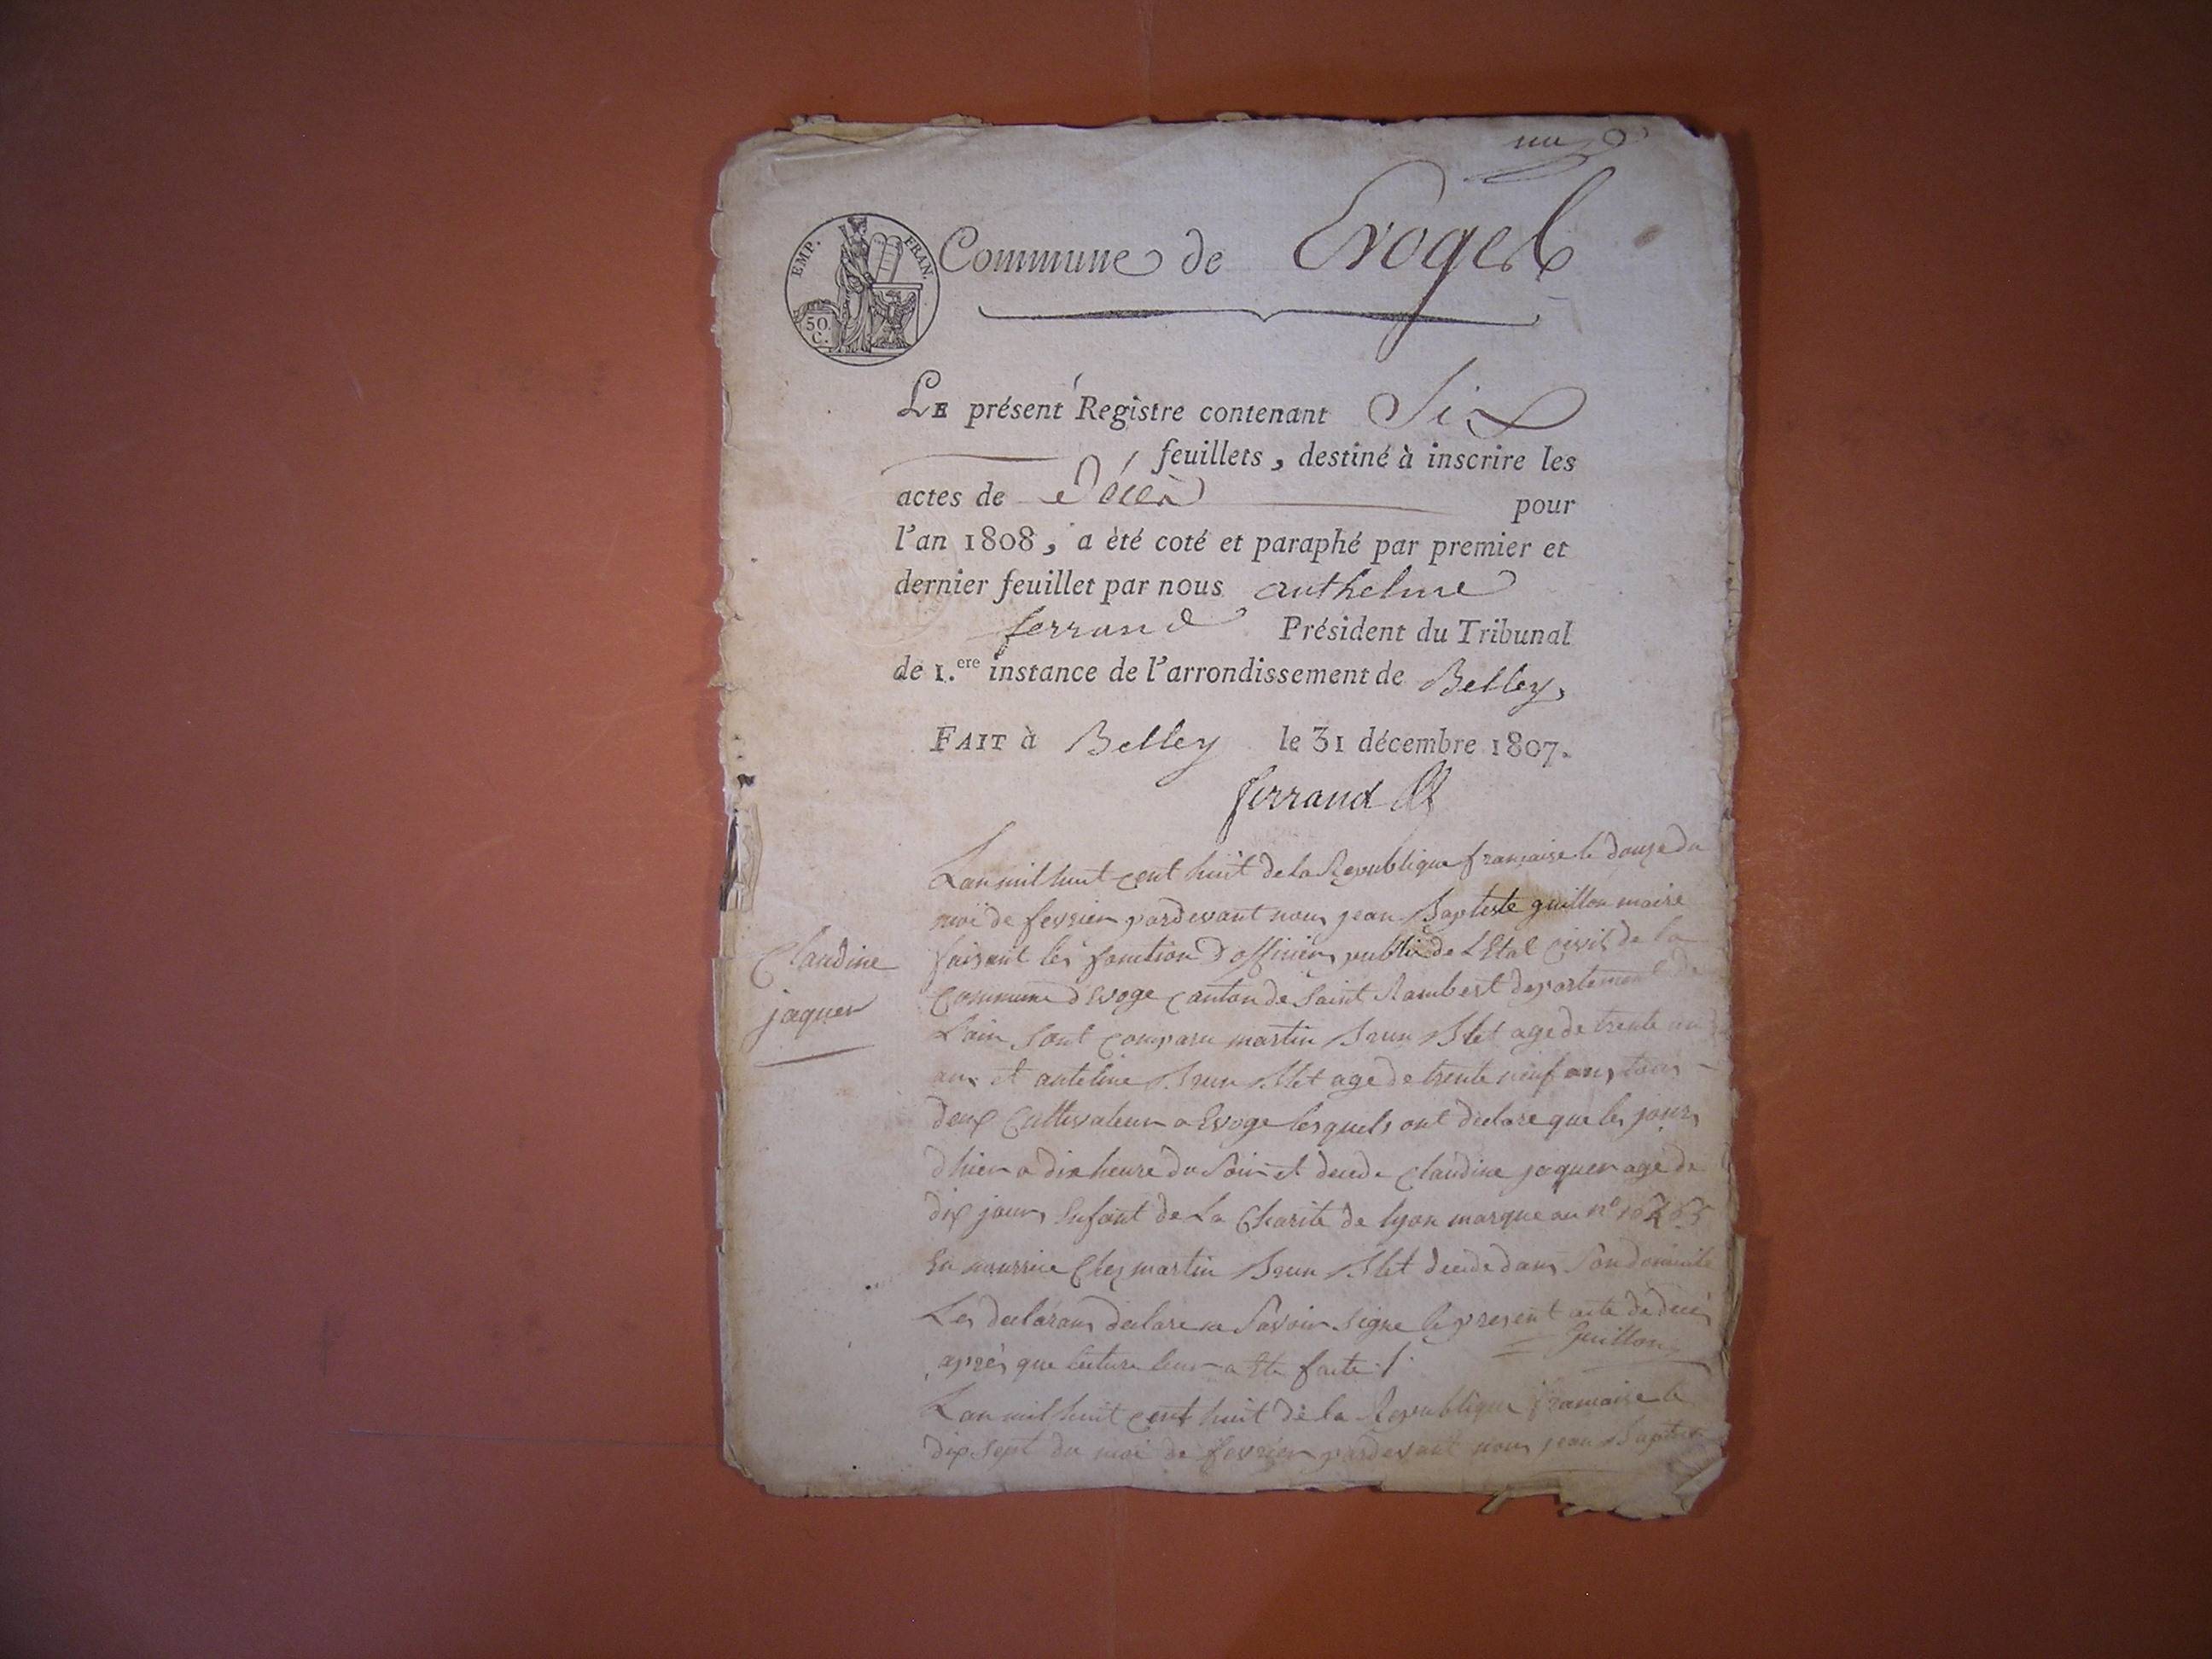 un
EMP. FRAN.
50.
C.
Commune de Evoges
LE présent Registre contenant Six
feuillets, destiné à inscrire les
actes de Décès pour
l'an 1808, a èté coté et paraphé par premier et
dernier feuillet par nous anthelme
ferrand Président du Tribunal
de 1.ere instance de l'arrondissement de Belley,
FAIT à Belley le 31 décembre 1807.
ferrand
Claudine
jaquer
Lan mil huit cent huit de la Republique francaise le douze du
moi de fevrier pardevant nous jean Baptiste guillon maire
faisant les fonction d'officier public de L'Etat Civil de la
Commune d'Evoge canton de Saint Rambert departement de
L'ain sont comparu martin Brun Blet age de trente
ans et antelme Brun Blet age de trente neuf ans tous
deux Cultivateur a Evoge lesquels ont declare que les jours
d'hier a dix heure du Soir et decede Claudine jaquer age de
dix jours Enfant de La Charite de lyon marque au nº
En nourrice Chez martin Brun Blet decede dans Son domicile
Les declarans declare ne Savoir Signe le present acte de decès
après que lecture leur a ete faite Guillon
Lan mil huit cent huit de la Republique francaise le
dix Sept du moi de fevrier pardevant nous jean Baptiste